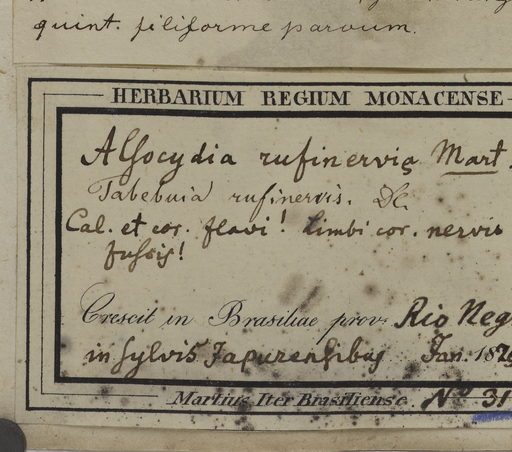 quint. filiforme parvum.
HERBARIUM REGIUM MONACENSE
Alsocydia rufinervis Mart.
Tabebuia rufinervis. DC
Cal. et cor. flavi! limbi cor. nervis
fuscis!
Crescit in Brasiliae prov. Rio Neg
in sylvis Japurensibus Jan. 18
Martius Iter Brasiliense No 31